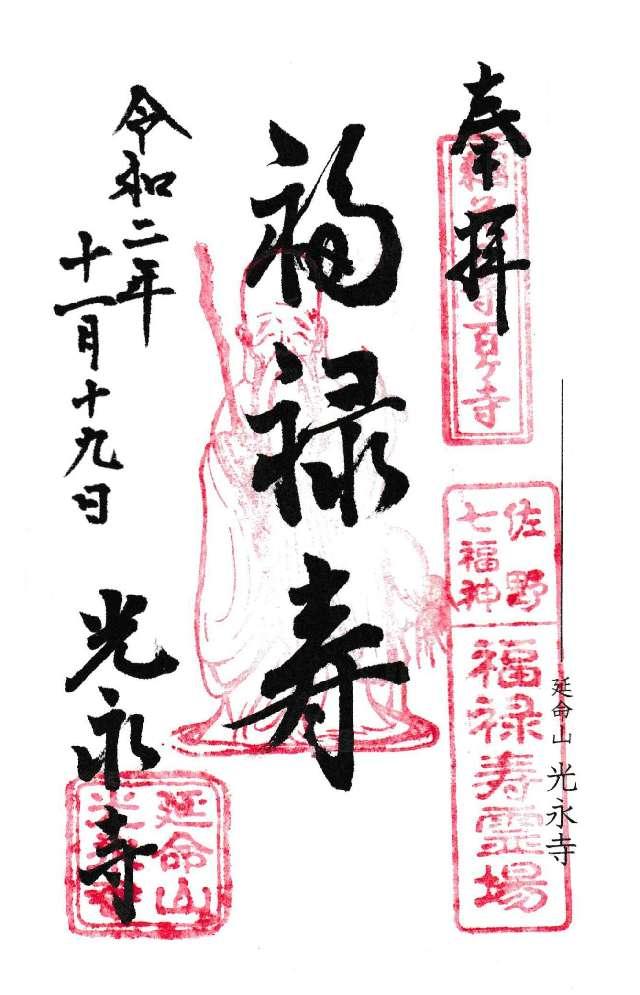 奉拝
佐野
七福神
福禄寿霊場
延命山 光永寺
福禄寿
令和二年
十一月十九日
光永寺
延命山
光永寺